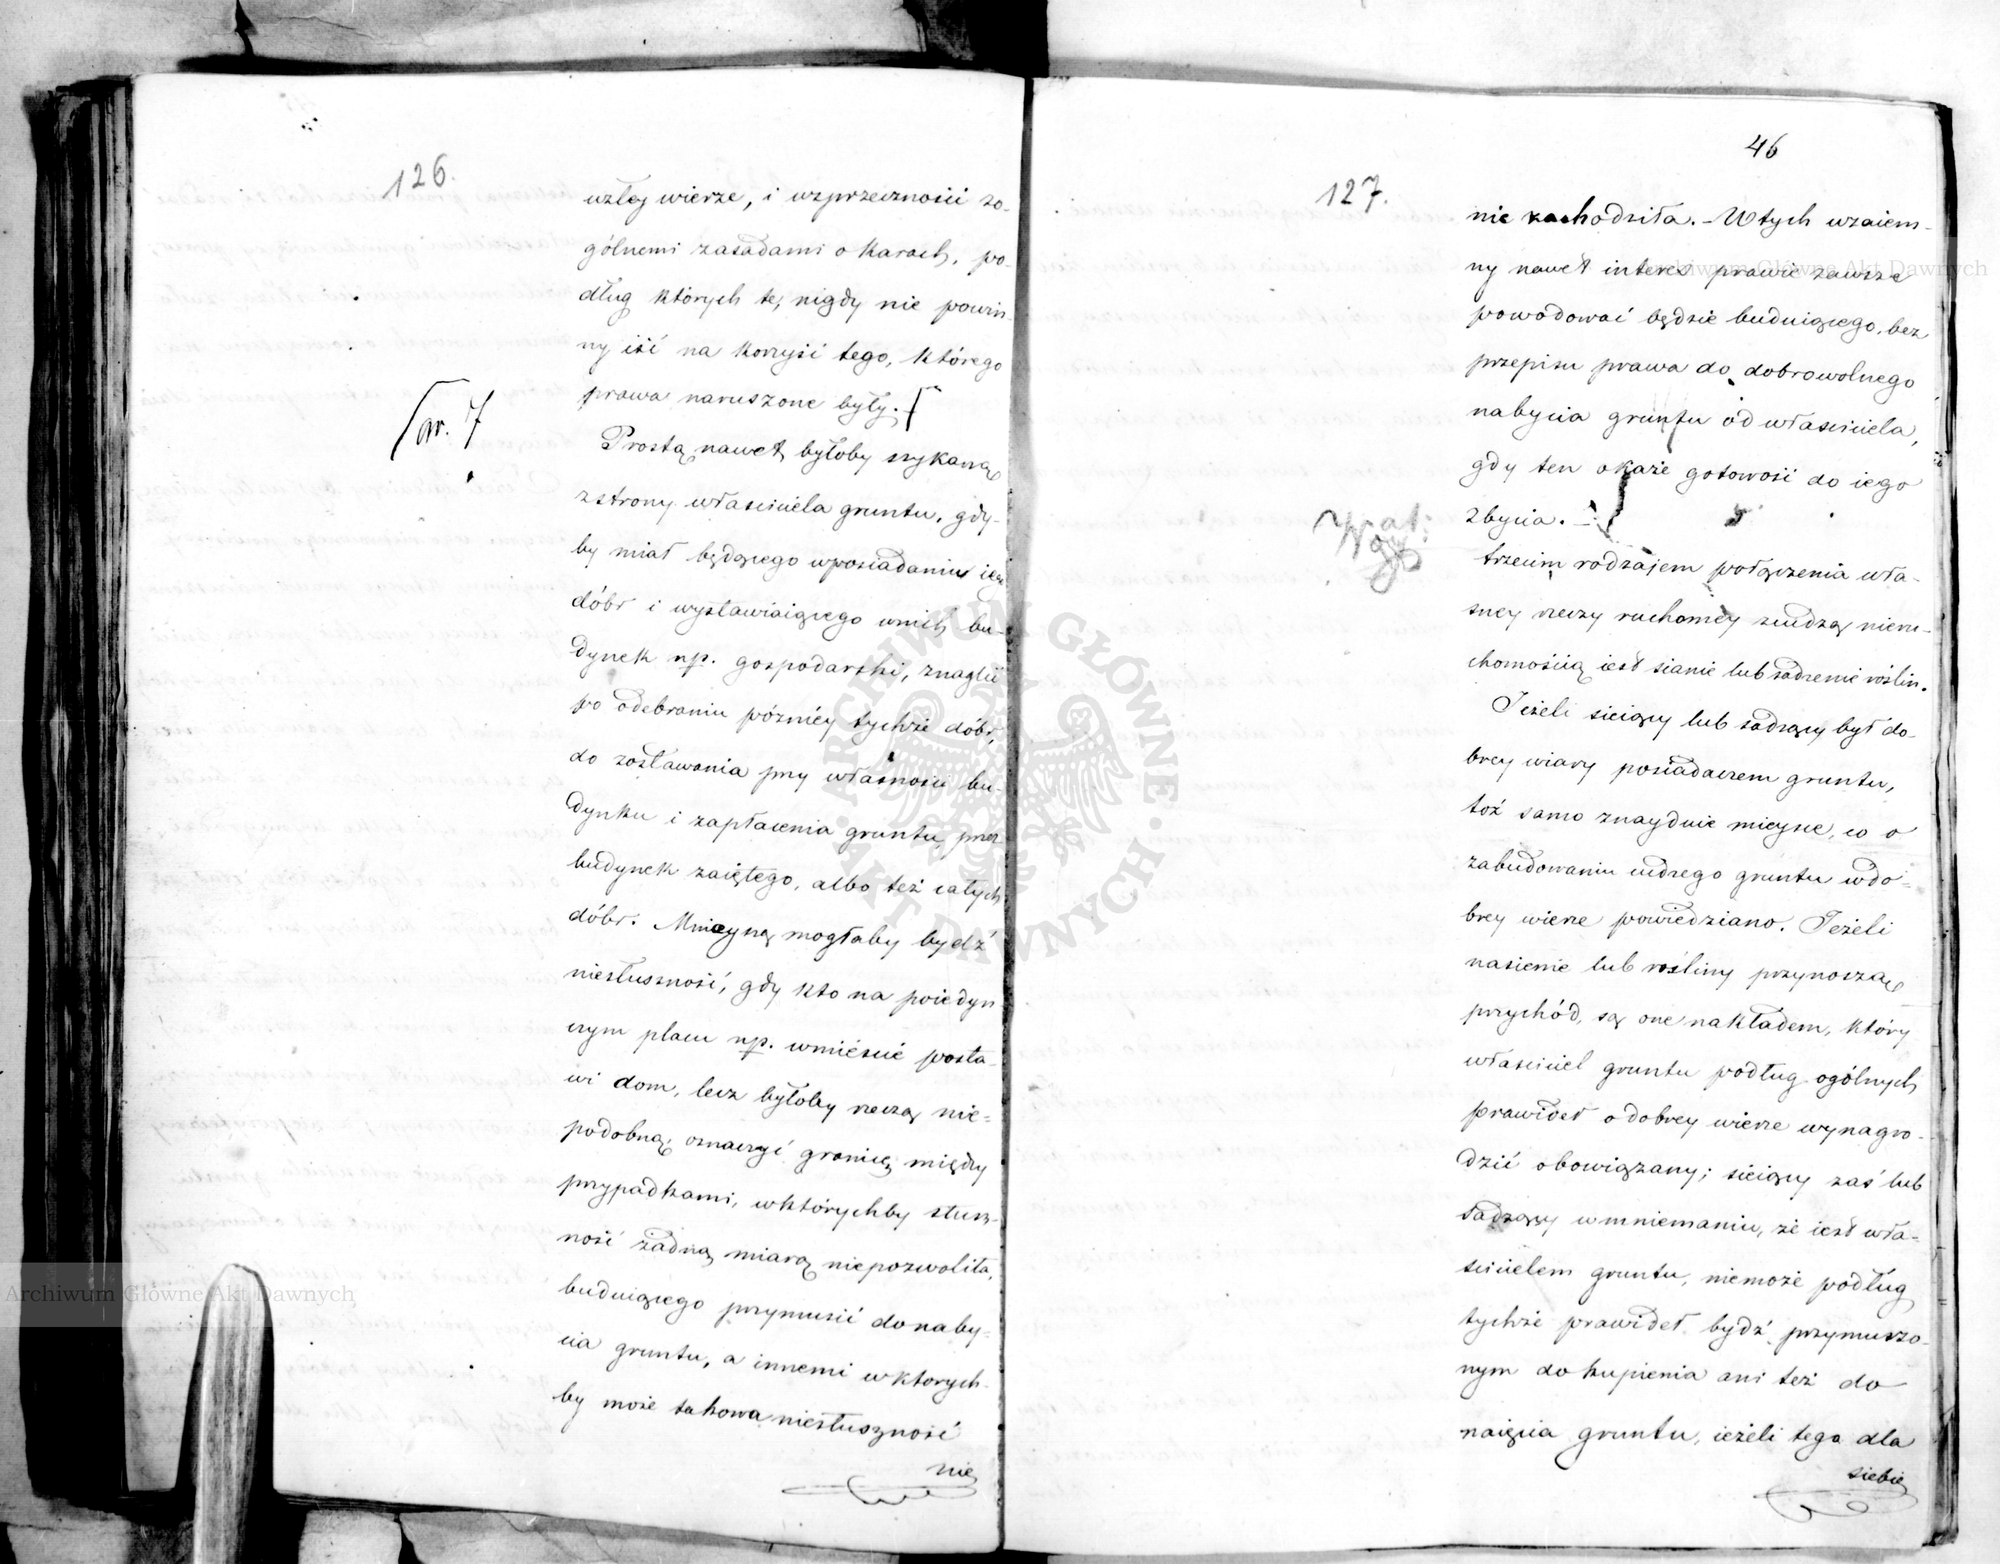 126.
wzłey wierze, i wsprzeczności zo-
gólnemi zasadami o karach, po-
dług których te, nigdy nie powin-
ny iść na korzyść tego, którego
prawa naruszone były.
ar. 7
Prostą nawet byłoby szykaną
z strony właściciela gruntu, gdy-
by miał będącego wposiadaniu iego
dóbr i wystawiaiącego wnich bu-
dynek np. gospodarski, znaglić
po odebraniu późniéy tychże dóbr,
do zostawania przy własności bu-
dynku i zapłacenia gruntu przez
budynek zaiętego, albo też całych
dóbr. Mnieyszą mogłaby bydź
niesłuszność, gdy kto na poiedyn
czym placu np. wmieście posta-
wi dom, lecz byłoby rzeczą nie-
podobną, oznaczyć granicę między
przypadkami, wktórychby słusz-
ność żadną miarą niepozwoliła,
buduiącego przymusić do naby-
cia gruntu, a innemi wktorych-
by może takowa niesłuszność
nie
46
127.
nie zachodziła. - Wtych wzaiem-
ny nawet interes prawie zawsze
powodować będzie buduiącego, bez
przepisu prawa do dobrowolnego
nabycia gruntu od właściciela,
gdy ten okaże gotowość do iego
zbycia. -
trzecim rodzajem połączenia wła-
sney rzeczy ruchoméy zcudzą nieru-
chomością iest sianie lub sadzenie roślin.
Jeżeli sieiący lub sadzący był do-
brey wiary posiadaczem gruntu,
toż samo znayduie mieysce, co o
zabudowaniu cudzego gruntu wdo-
brey wierze powiedziano. Jeżeli
nasienie lub rośliny przynoszą
przychód, są one nakładem, który
właściciel gruntu podług ogólnych
prawideł o dobrey wierze wynagro-
dzić obowiązany; sieiący zaś lub
sadzący wmniemaniu, że iest wła-
ścicielem gruntu, niemoże podług
tychże prawideł bydź przymuszo-
nym do kupienia ani też do
naięcia gruntu, ieżeli tego dla
siebie
Archiwum Główne Akt Dawnych
Archiwum Główne Akt Dawnych
ARCHIWUM GŁÓWNE · AKT DAWNYCH ·